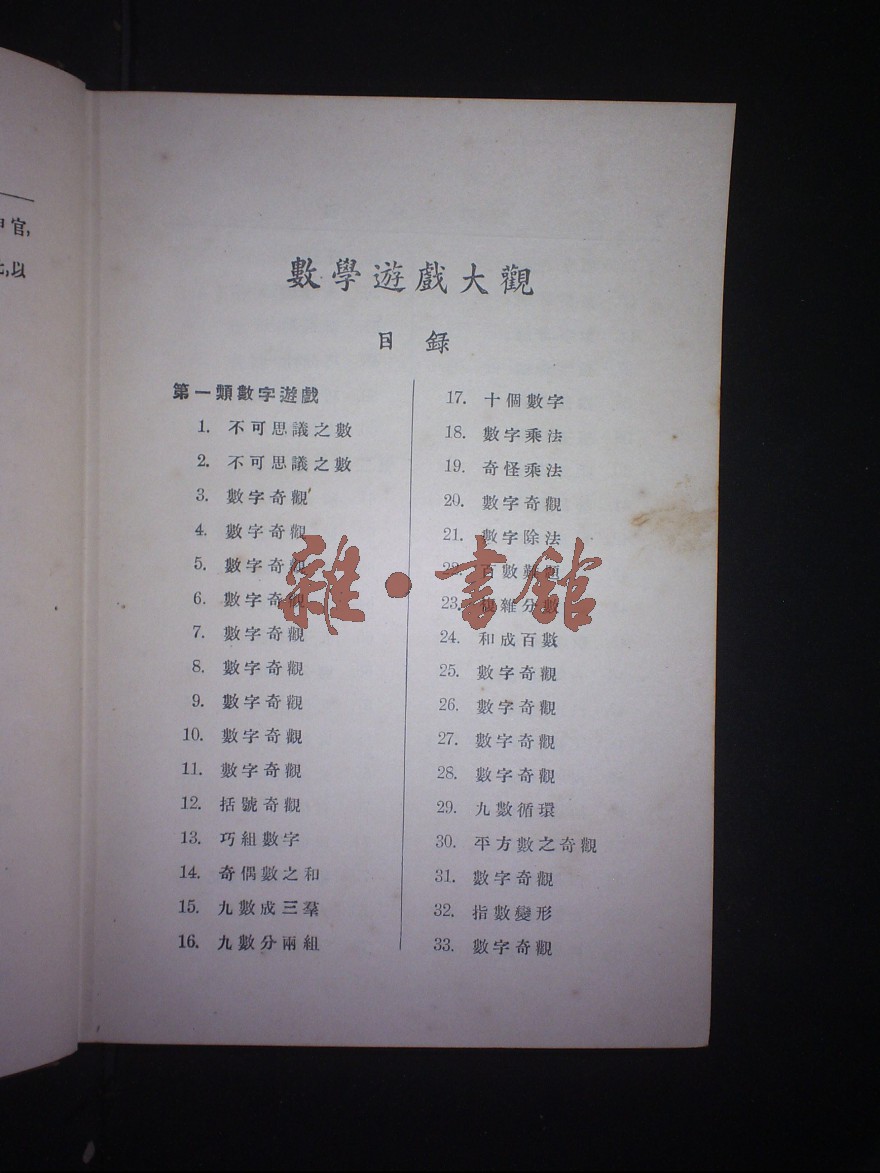 官,
以
數學遊戲大觀
目錄
第一類數字遊戲
1. 不可思議之數
2. 不可思議之數
3. 數字奇觀
4. 數字奇觀
5. 數字奇觀
6. 數字奇觀
7. 數字奇觀
8. 數字奇觀
9. 數字奇觀
10. 數字奇觀
11. 數字奇觀
12. 括號奇觀
13. 巧組數字
14. 奇偶數之和
15. 九數成三羣
16. 九數分兩組
17. 十個數字
18. 數字乘法
19. 奇怪乘法
20. 數字奇觀
21. 數字除法
22. 百數難題
23. 複雜分數
24. 和成百數
25. 數字奇觀
26. 數字奇觀
27. 數字奇觀
28. 數字奇觀
29. 九數循環
30. 平方數之奇觀
31. 數字奇觀
32. 指數變形
33. 數字奇觀
雜·書館